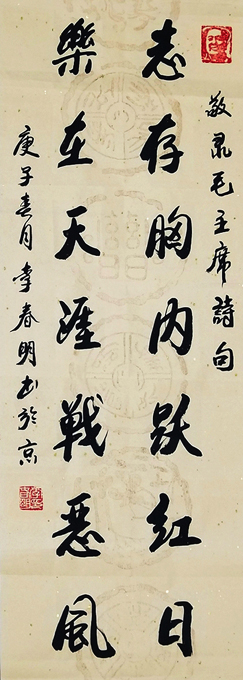 敬录毛主席詩句
志存胸内跃红日
樂在天涯戰恶風
庚子春月李春明书於京